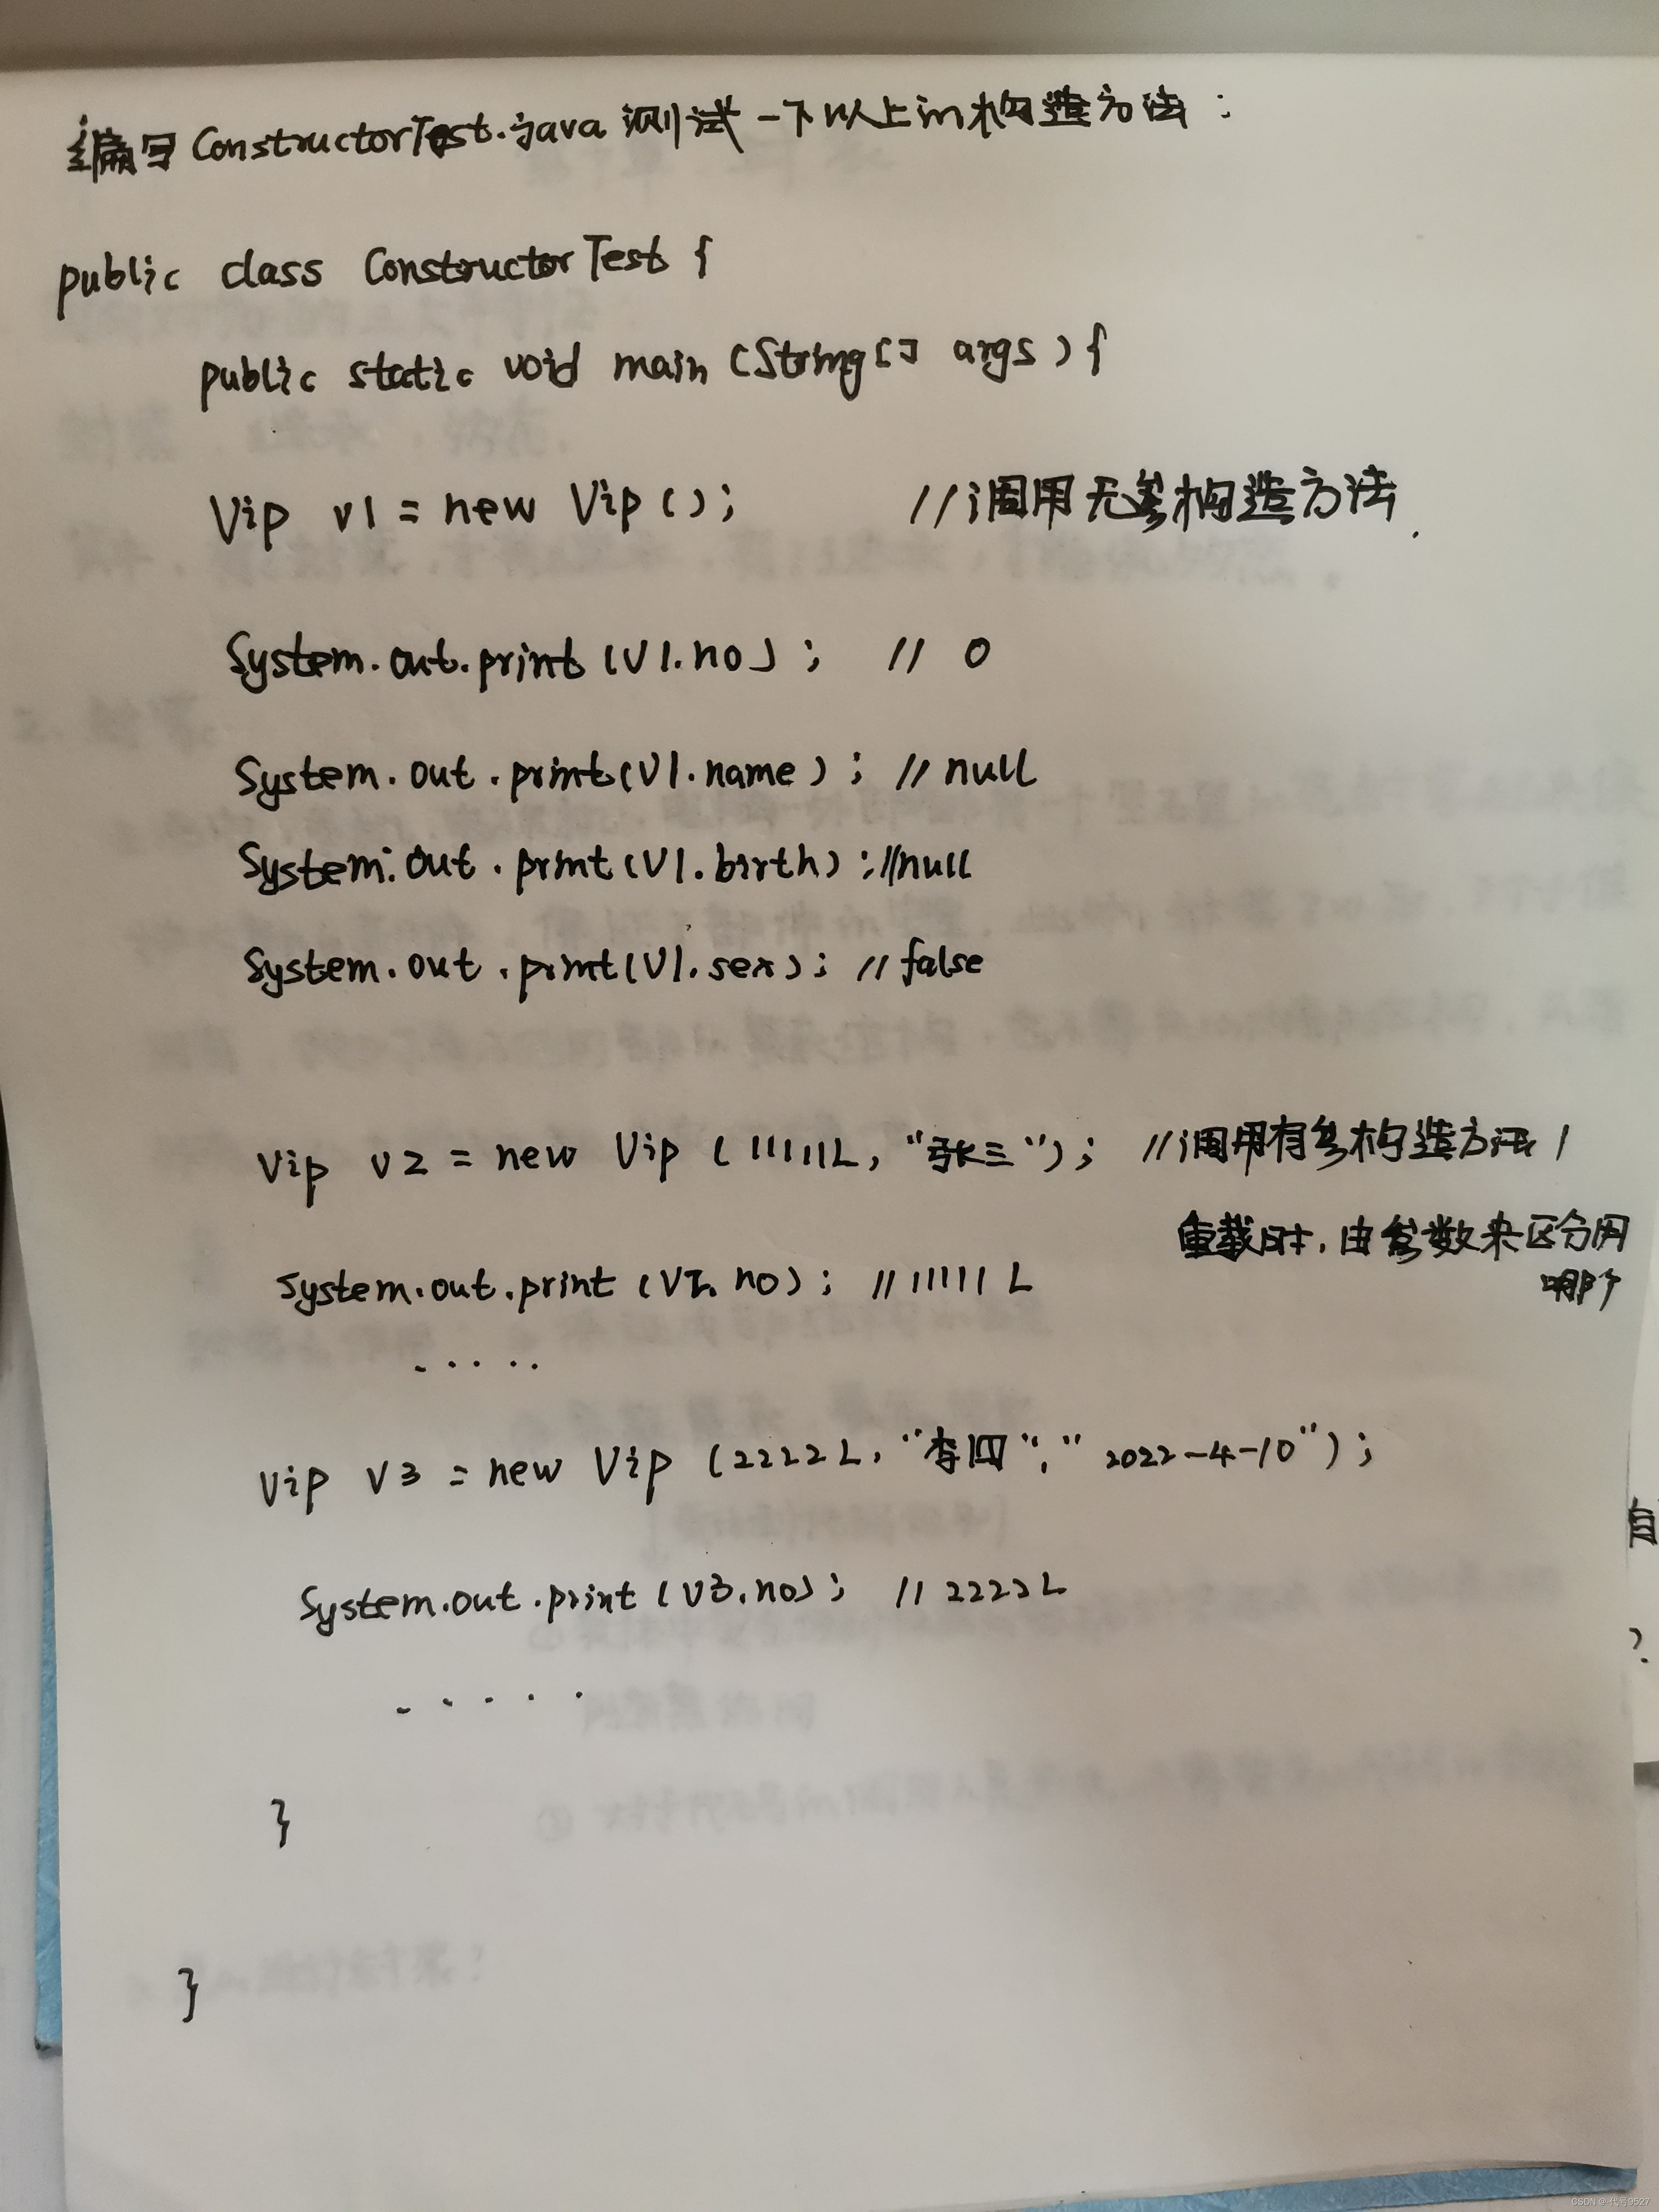 编写ConstructorTest.java测试一下以上in构造方法：
public class ConstructorTest {
public static void main (String[] args) {
Vip v1 = new Vip(); //调用无参构造方法.
System.out.print(V1.no); // 0
System.out.print(V1.name); // null
System.out.print(V1.birth); //null
System.out.print(V1.sex); // false
Vip v2 = new Vip (11111L, "张三"); //调用有参构造方法1
重载时,由参数来区分用
哪个
System.out.print (V2.no); // 11111 L
.....
Vip V3 = new Vip (2222L, "李四", "2022-4-10");
System.out.print (V3.no); // 2222L
.....
}
}
自
?
CSDN @代号9527